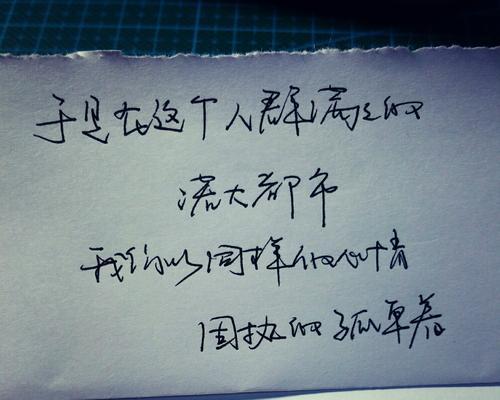 于是在这个人群满的
偌大都市
我们以同样的心情
固执的孤单着